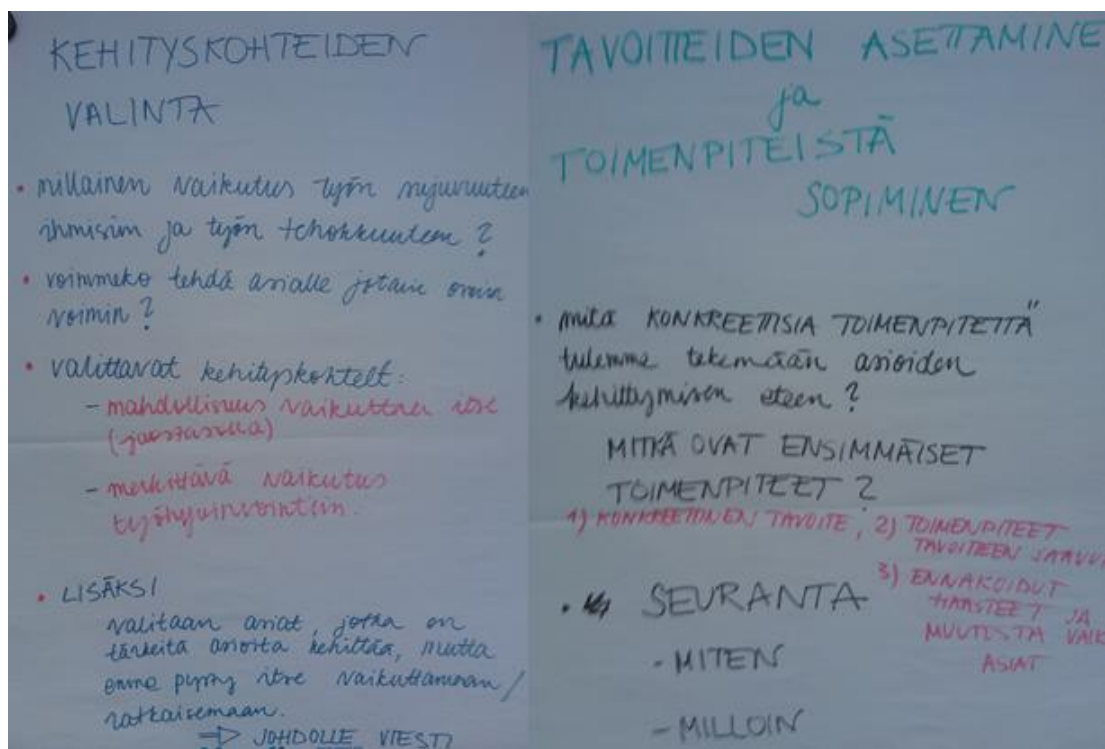 KEHITYSKOHTEIDEN
VALINTA
• millainen vaikutus työn sujuvuuteen
ihmisiin ja työn tehokkuuteen ?
• voimmeko tehdä asialle jotain omin
voimin ?
• valittavat kehityskohteet:
- mahdollisuus vaikuttaa itse
- merkittävä vaikutus
työhyvinvointiin.
• LISÄKSI
valitaan asiat, jotka on
tärkeitä asioita kehittää, mutta
emme pysty itse vaikuttamaan /
ratkaisemaan.
⇒ JOHDOLLE VIESTI
TAVOITTEIDEN ASETTAMINE
ja
TOIMENPITEISTÄ
SOPIMINEN
• mitä KONKREETTISIA TOIMENPITEITÄ
tulemme tekemään asioiden
kehittymisen eteen ?
MITKÄ OVAT ENSIMMÄISET
TOIMENPITEET ?
1) KONKREETTINEN TAVOITE, 2) TOIMENPITEET
TAVOITTEEN SAAVU
3) ENNAKOIDUT
HAASTEET JA
MUUTOSTA VAIK
ASIAT
• SEURANTA
- MITEN
- MILLOIN